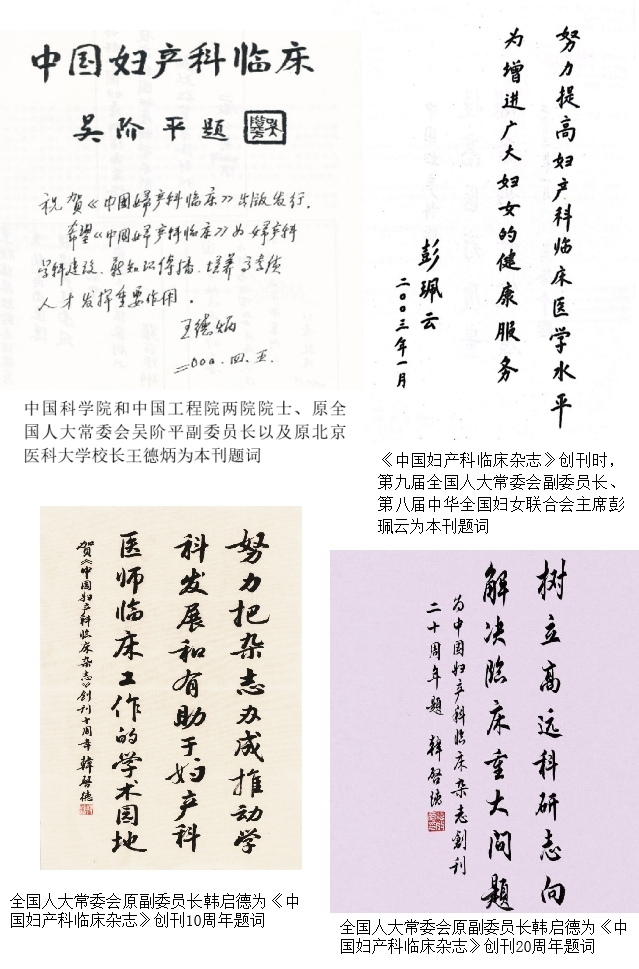 中国妇产科临床
吴阶平题
祝贺《中国婦产科临床》出版发行。
希望《中国婦产科临床》为婦产科
学科建设、新知识传播、培养高素质
人才发挥重要作用。
王德炳
二000.四.五.
中国科学院和中国工程院两院院士、原全
国人大常委会吴阶平副委员长以及原北京
医科大学校长王德炳为本刊题词
努力提高妇产科临床医学水平
为增进广大妇女的健康服务
彭珮云
二〇〇三年一月
《中国妇产科临床杂志》创刊时，
第九届全国人大常委会副委员长、
第八届中华全国妇女联合会主席彭
珮云为本刊题词
努力把杂志办成推动学
科发展和有助于妇产科
医师临床工作的学术园地
贺《中国妇产科临床杂志》創刊十周年 韓啓德
全国人大常委会原副委员长韩启德为《中
国妇产科临床杂志》创刊10周年题词
树立高远科研志向
解决临床重大问题
为中国妇产科临床杂志創刊
二十周年题 韓啓德
全国人大常委会原副委员长韩启德为《中
国妇产科临床杂志》创刊20周年题词